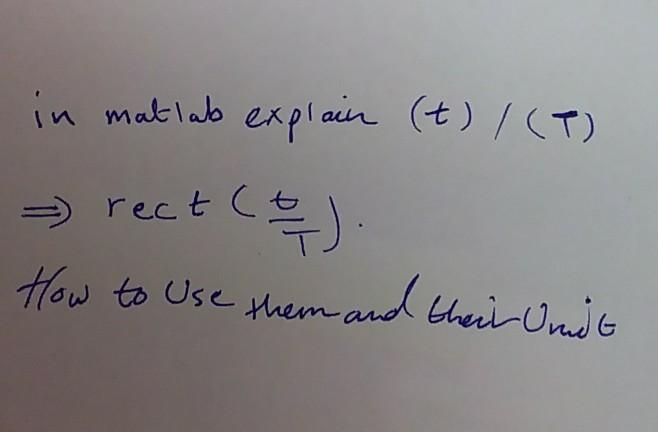 in matlab explain (t) / (T)
⇒ rect (t/T).
How to Use them and their Unit